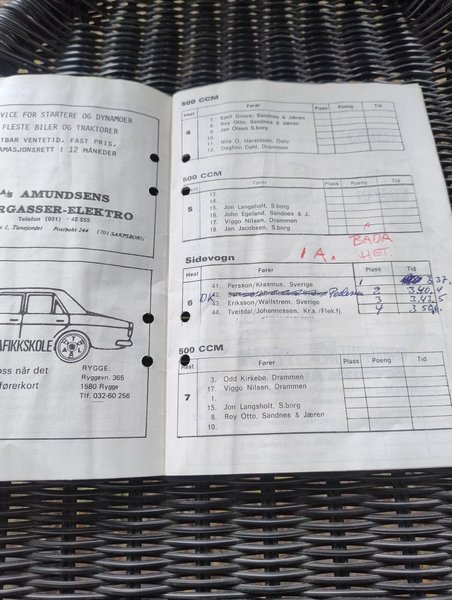 VICE FOR STARTERE OG DYNAMOER
FLESTE BILER OG TRAKTORER
TBAR VENTETID, FAST PRIS,
AMASJONSRETT I 12 MÅNEDER
A/s AMUNDSENS
RGASSER-ELEKTRO
Telefon (031) - 42 555
n 1, Tunejordet Postboks 244 1701 SARPSBORG
AFIKKSKOLE
oss når det
førerkort
RYGGE:
Ryggevn. 365
1580 Rygge
Tlf. 032-60 256
500 CCM
Heat Fører Plass Poeng Tid
4
7. Kjell Gimre, Sandnes & Jæren
8. Roy Otto, Sandnes & Jæren
9. Jan Olsen S.borg
11. Nils O. Haraldsen, Oslo
12. Dagfinn Dahl, Drammen
500 CCM
Heat Fører Plass Poeng Tid
5
13.
14.
15. Jon Langsholt, S.borg
16. John Egeland, Sandnes & J.
17. Viggo Nilsen, Drammen
18. Jan Jacobsen, S.borg
1 A. BAUA
HET.
Sidevogn
Heat Fører Plass Tid
6
41. Persson/Krasmus, Sverige 1 3,37.
DK 42. 2 3.40,4
43. Eriksson/Wallstrøm, Sverige 3 3.43,5
44. Tveitdal/Johannessen, Kr.s./Flek.fj. 4
500 CCM
Heat Fører Plass Poeng Tid
7
3. Odd Kirkebø, Drammen
17. Viggo Nilsen, Drammen
1.
15. Jon Langsholt, S.borg
8. Roy Otto, Sandnes & Jæren
10.